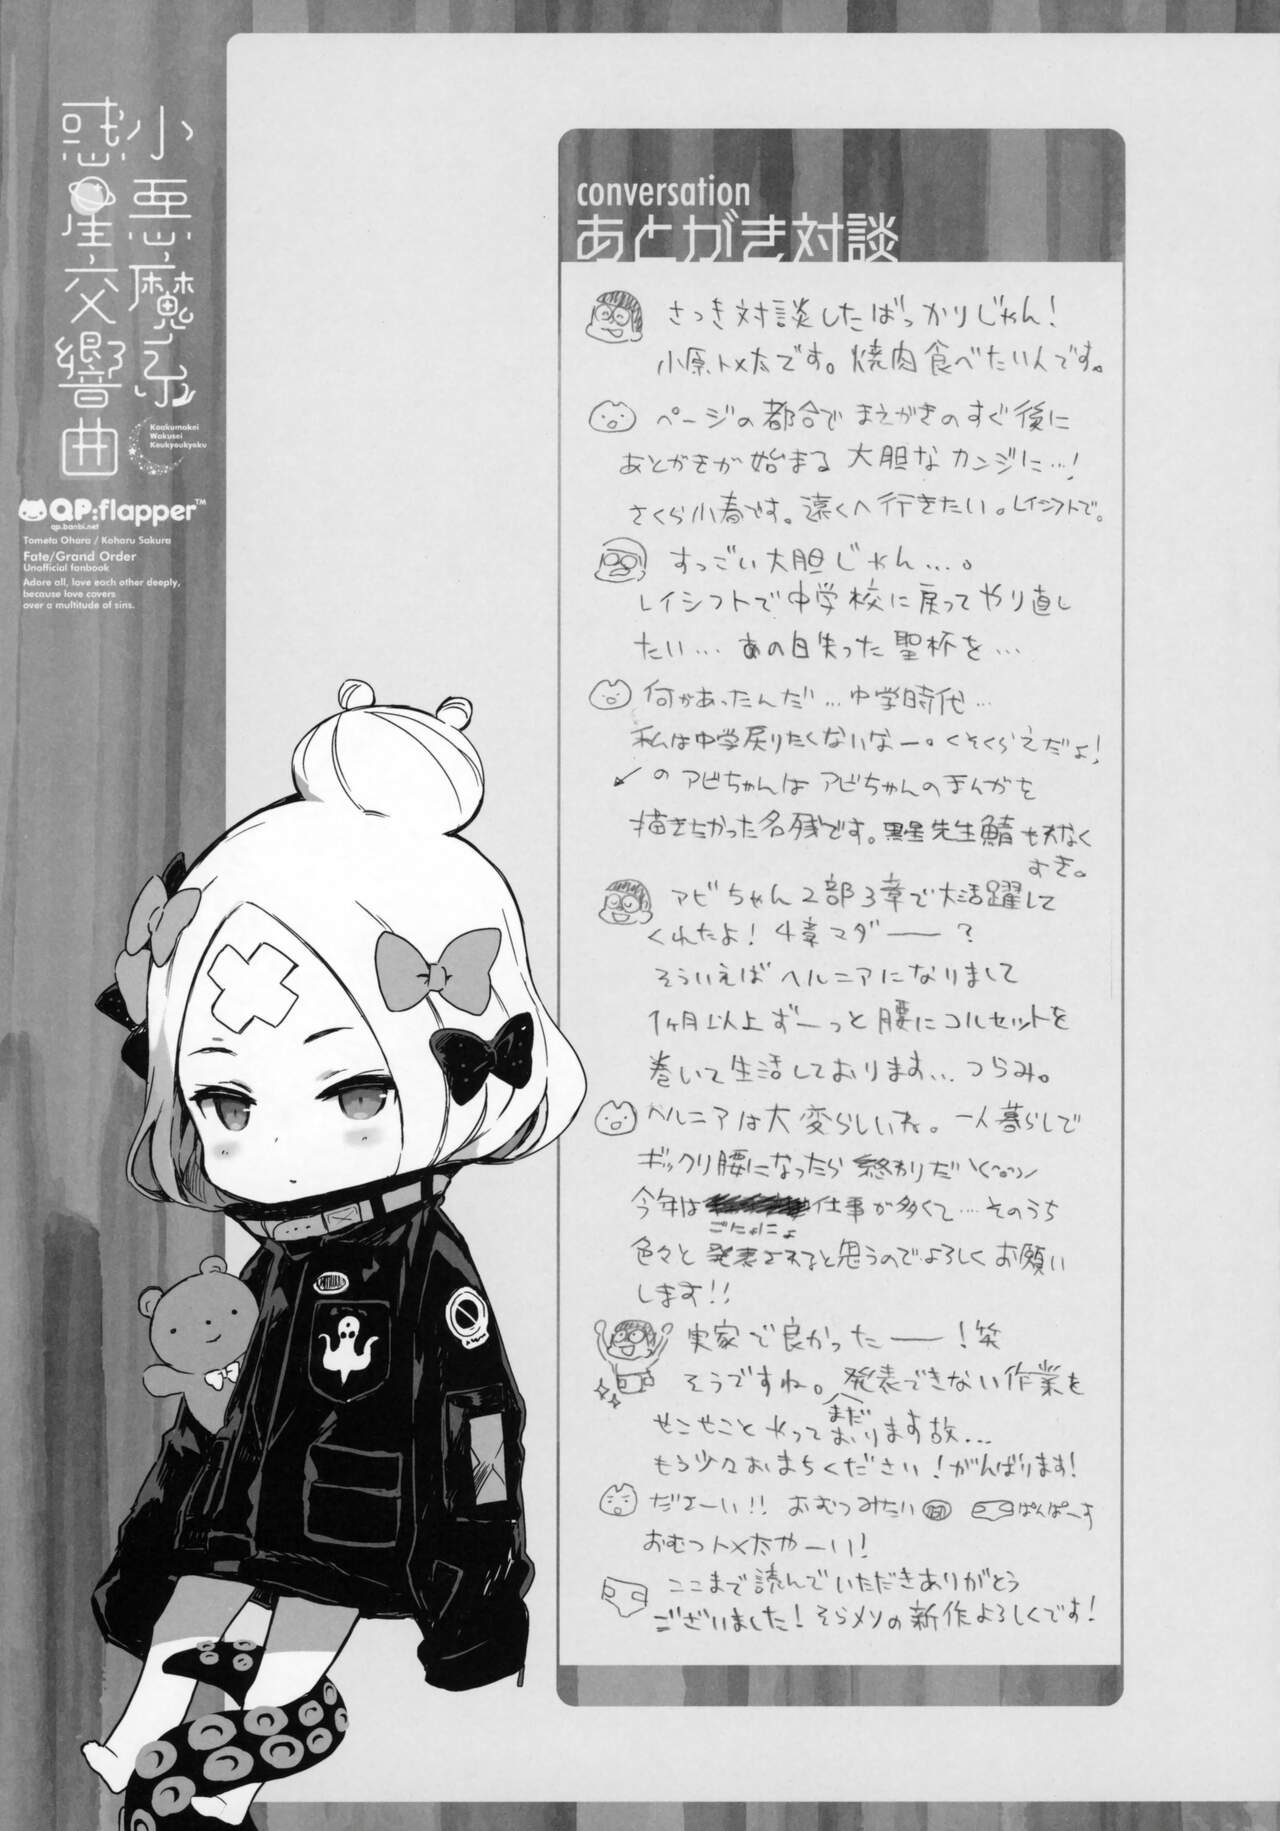 小悪魔系
惑星交響曲
Koakumakei
Wakusei
Koukyoukyoku
QP:flapper™
qp.banbi.net
Tometa Ohara / Koharu Sakura
Fate/Grand Order
Unofficial fanbook
Adore all, love each other deeply,
because love covers
over a multitude of sins.
conversation
あとがき対談
さっき対談したばっかりじゃん!
小原トメ太です。焼肉食べたい人です。
ページの都合で まえがきのすぐ後に
あとがきが始まる 大胆な カンジに…!
さくら小春です。遠くへ行きたい。レイシフトで。
すっごい大胆じゃん….。
レイシフトで中学校に戻ってやり直し
たい… あの日失った聖杯を…
何があったんだ…中学時代…
私は中学戻りたくないなー。くそくらえだよ!
↙のアビちゃんは アビちゃんのまんがを
描きたかった名残です。黒星先生鯖も切なく
すき。
アビちゃん2部3章で大活躍して
くれたよ! 4章マダー?
そういえばヘルニアになりまして
1ヶ月以上ずーっと腰にコルセットを
巻いて生活しております… つらみ。
ヘルニアは大変らしいね。一人暮らしで
ギックリ腰になったら 終わりだ
今年は 仕事が多くて…そのうち
ごにょにょ
色々と発表されると思うのでよろしくお願い
します!!
実家で良かったー!笑
そうですね。発表できない作業を
せこせことやって まだ おります故…
もう少々おまちください!がんばります!
だよーい!! おむつみたい ぱんぱーす
おむつトメ太やーい!
ここまで読んでいただきありがとう
ございました! そらメソの新作よろしくです!